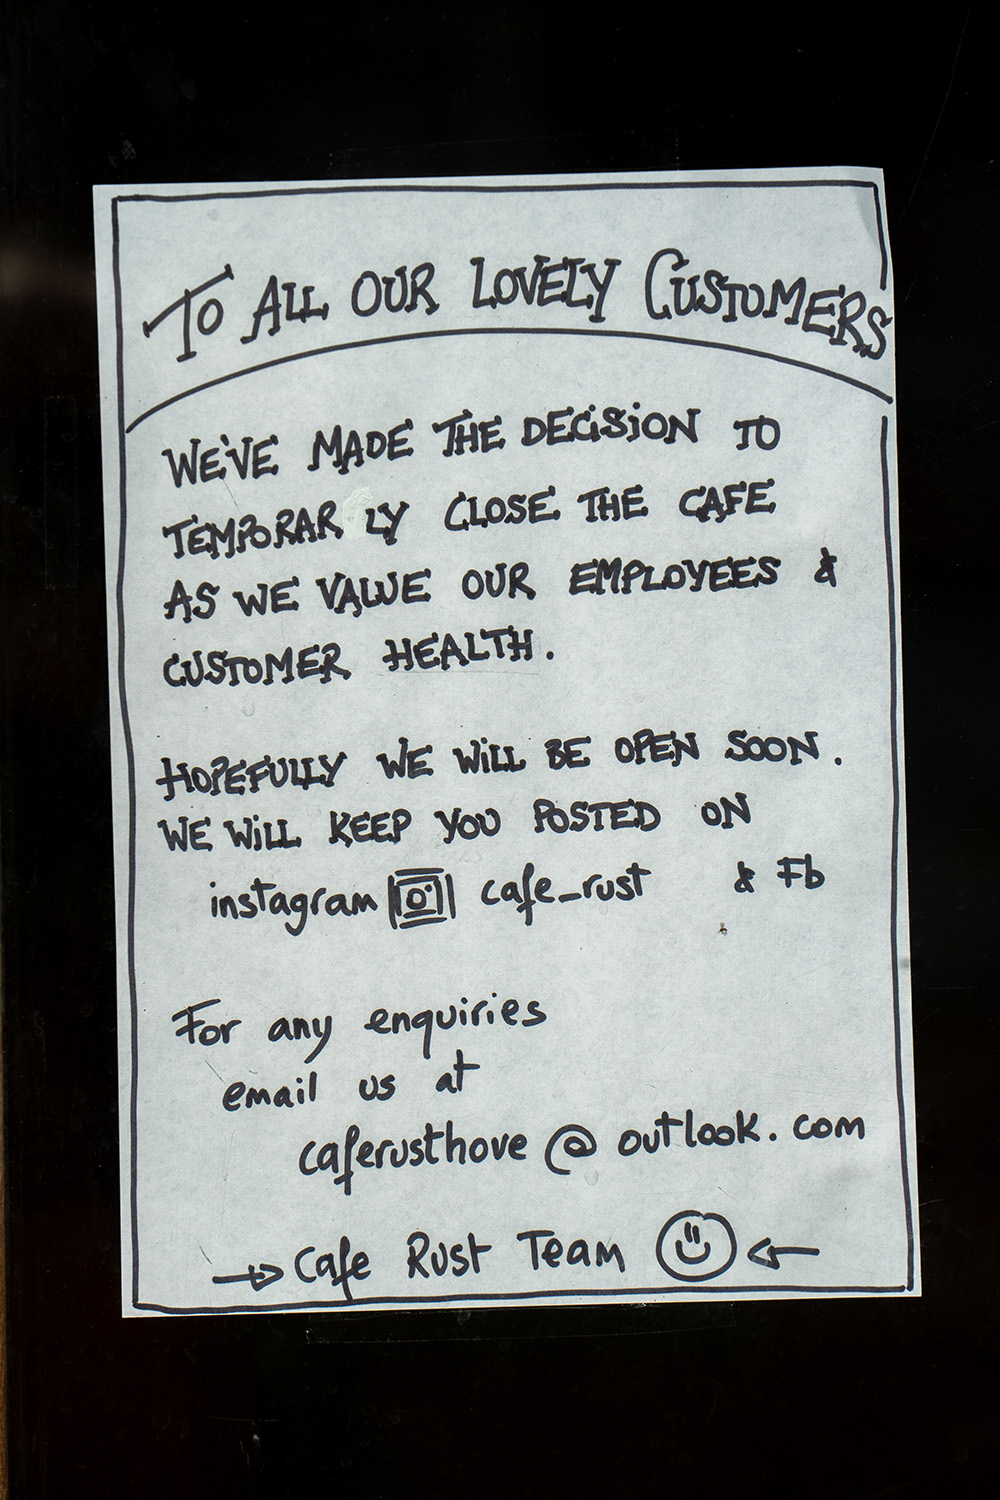 TO ALL OUR LOVELY CUSTOMERS
WE'VE MADE THE DECISION TO
TEMPORAR LY CLOSE THE CAFE
AS WE VALUE OUR EMPLOYEES &
CUSTOMER HEALTH.
HOPEFULLY WE WILL BE OPEN SOON.
WE WILL KEEP YOU POSTED ON
instagram cafe_rust & Fb
For any enquiries
email us at
caferusthove@outlook.com
Cafe Rust Team